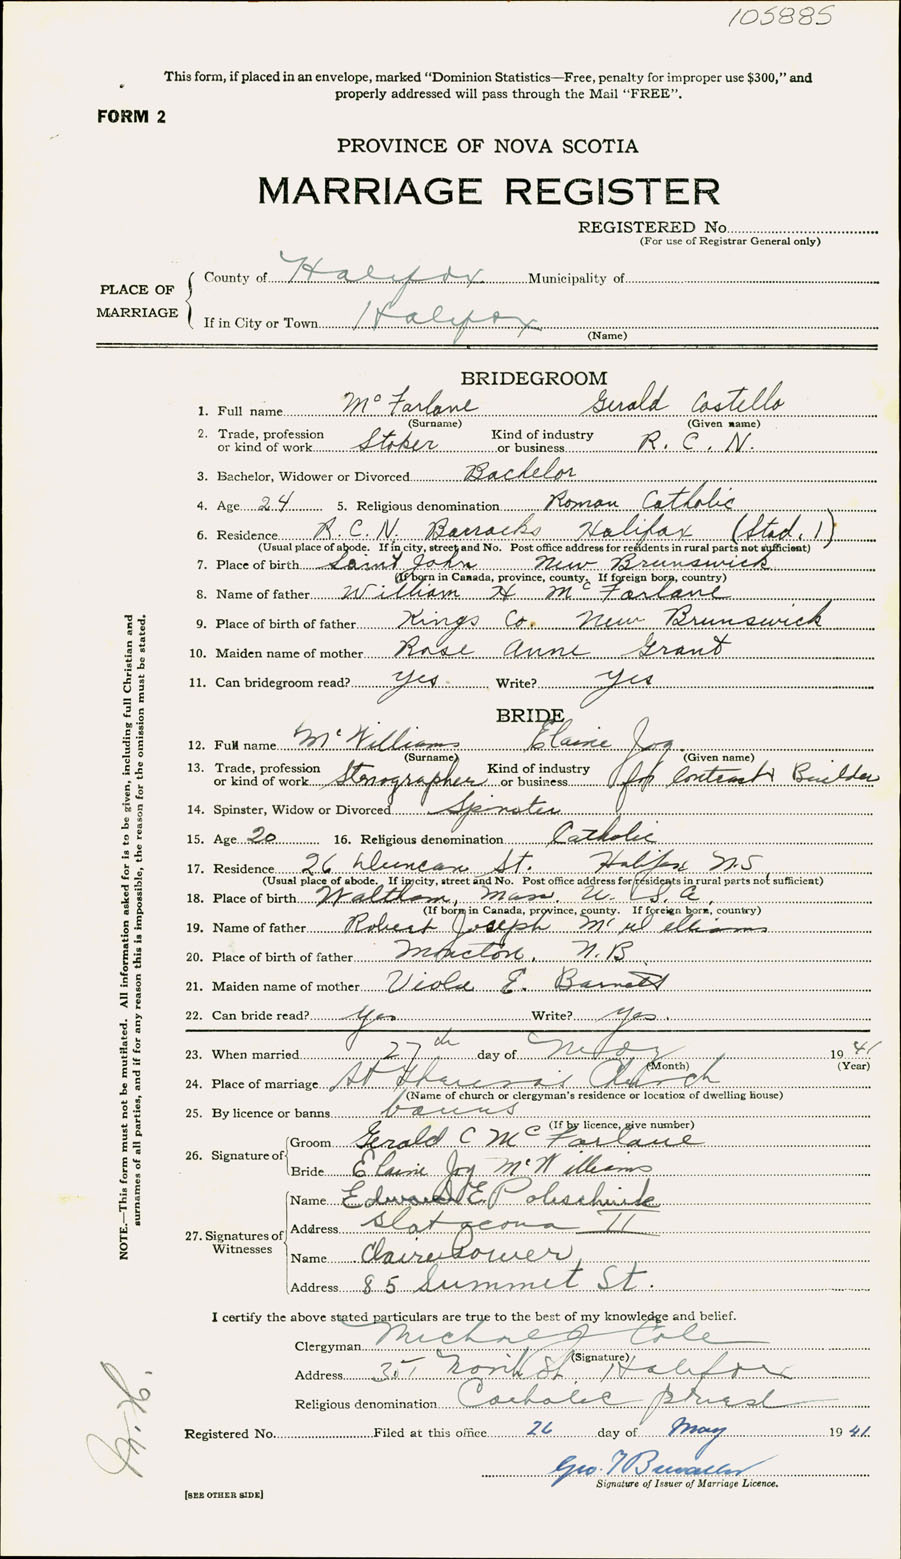 105885
This form, if placed in an envelope, marked “Dominion Statistics—Free, penalty for improper use $300,” and
properly addressed will pass through the Mail “FREE”.
FORM 2
PROVINCE OF NOVA SCOTIA
MARRIAGE REGISTER
REGISTERED No.
(For use of Registrar General only)
PLACE OF MARRIAGE
County of Halifax Municipality of
If in City or Town Halifax
(Name)
BRIDEGROOM
1. Full name McFarlane Gerald Costello
(Surname) (Given name)
2. Trade, profession or kind of work Stoker Kind of industry or business R. C. N.
3. Bachelor, Widower or Divorced Bachelor
4. Age 24 5. Religious denomination Roman Catholic
6. Residence R.C.N. Barracks Halifax (Stad. 1)
(Usual place of abode. If in city, street and No. Post office address for residents in rural parts not sufficient)
7. Place of birth Saint John New Brunswick
(If born in Canada, province, county. If foreign born, country)
8. Name of father William H McFarlane
9. Place of birth of father Kings Co. New Brunswick
10. Maiden name of mother Rose Anne Grant
11. Can bridegroom read? yes Write? yes
BRIDE
12. Full name McWilliams Elaine Joy
(Surname) (Given name)
13. Trade, profession or kind of work Stenographer Kind of industry or business for Contract Builder
14. Spinster, Widow or Divorced Spinster
15. Age 20 16. Religious denomination Catholic
17. Residence 26 Duncan St. Halifax N.S
(Usual place of abode. If in city, street and No. Post office address for residents in rural parts not sufficient)
18. Place of birth Waltham, Mass. U. S. A.
(If born in Canada, province, county. If foreign born, country)
19. Name of father Robert Joseph McWilliams
20. Place of birth of father Moncton, N.B
21. Maiden name of mother Viola E. Barnett
22. Can bride read? yes Write? yes.
23. When married 27th day of May 1941
(Month) (Year)
24. Place of marriage St Theresa's Church
(Name of church or clergyman's residence or location of dwelling house)
25. By licence or banns banns
(If by licence, give number)
26. Signature of
Groom Gerald C McFarlane
Bride Elaine Joy McWilliams
27. Signatures of Witnesses
Name Edward E
Address II
Name Claire Power
Address 85 Summit St.
I certify the above stated particulars are true to the best of my knowledge and belief.
Clergyman Michael J Cole
(Signature)
Address North St. Halifax
Religious denomination Catholic priest
Registered No. Filed at this office 26 day of May 1941.
Geo.
Signature of Issuer of Marriage Licence.
[SEE OTHER SIDE]
NOTE.—This form must not be mutilated. All information asked for is to be given, including full Christian and
surnames of all parties, and if for any reason this is impossible, the reason for the omission must be stated.